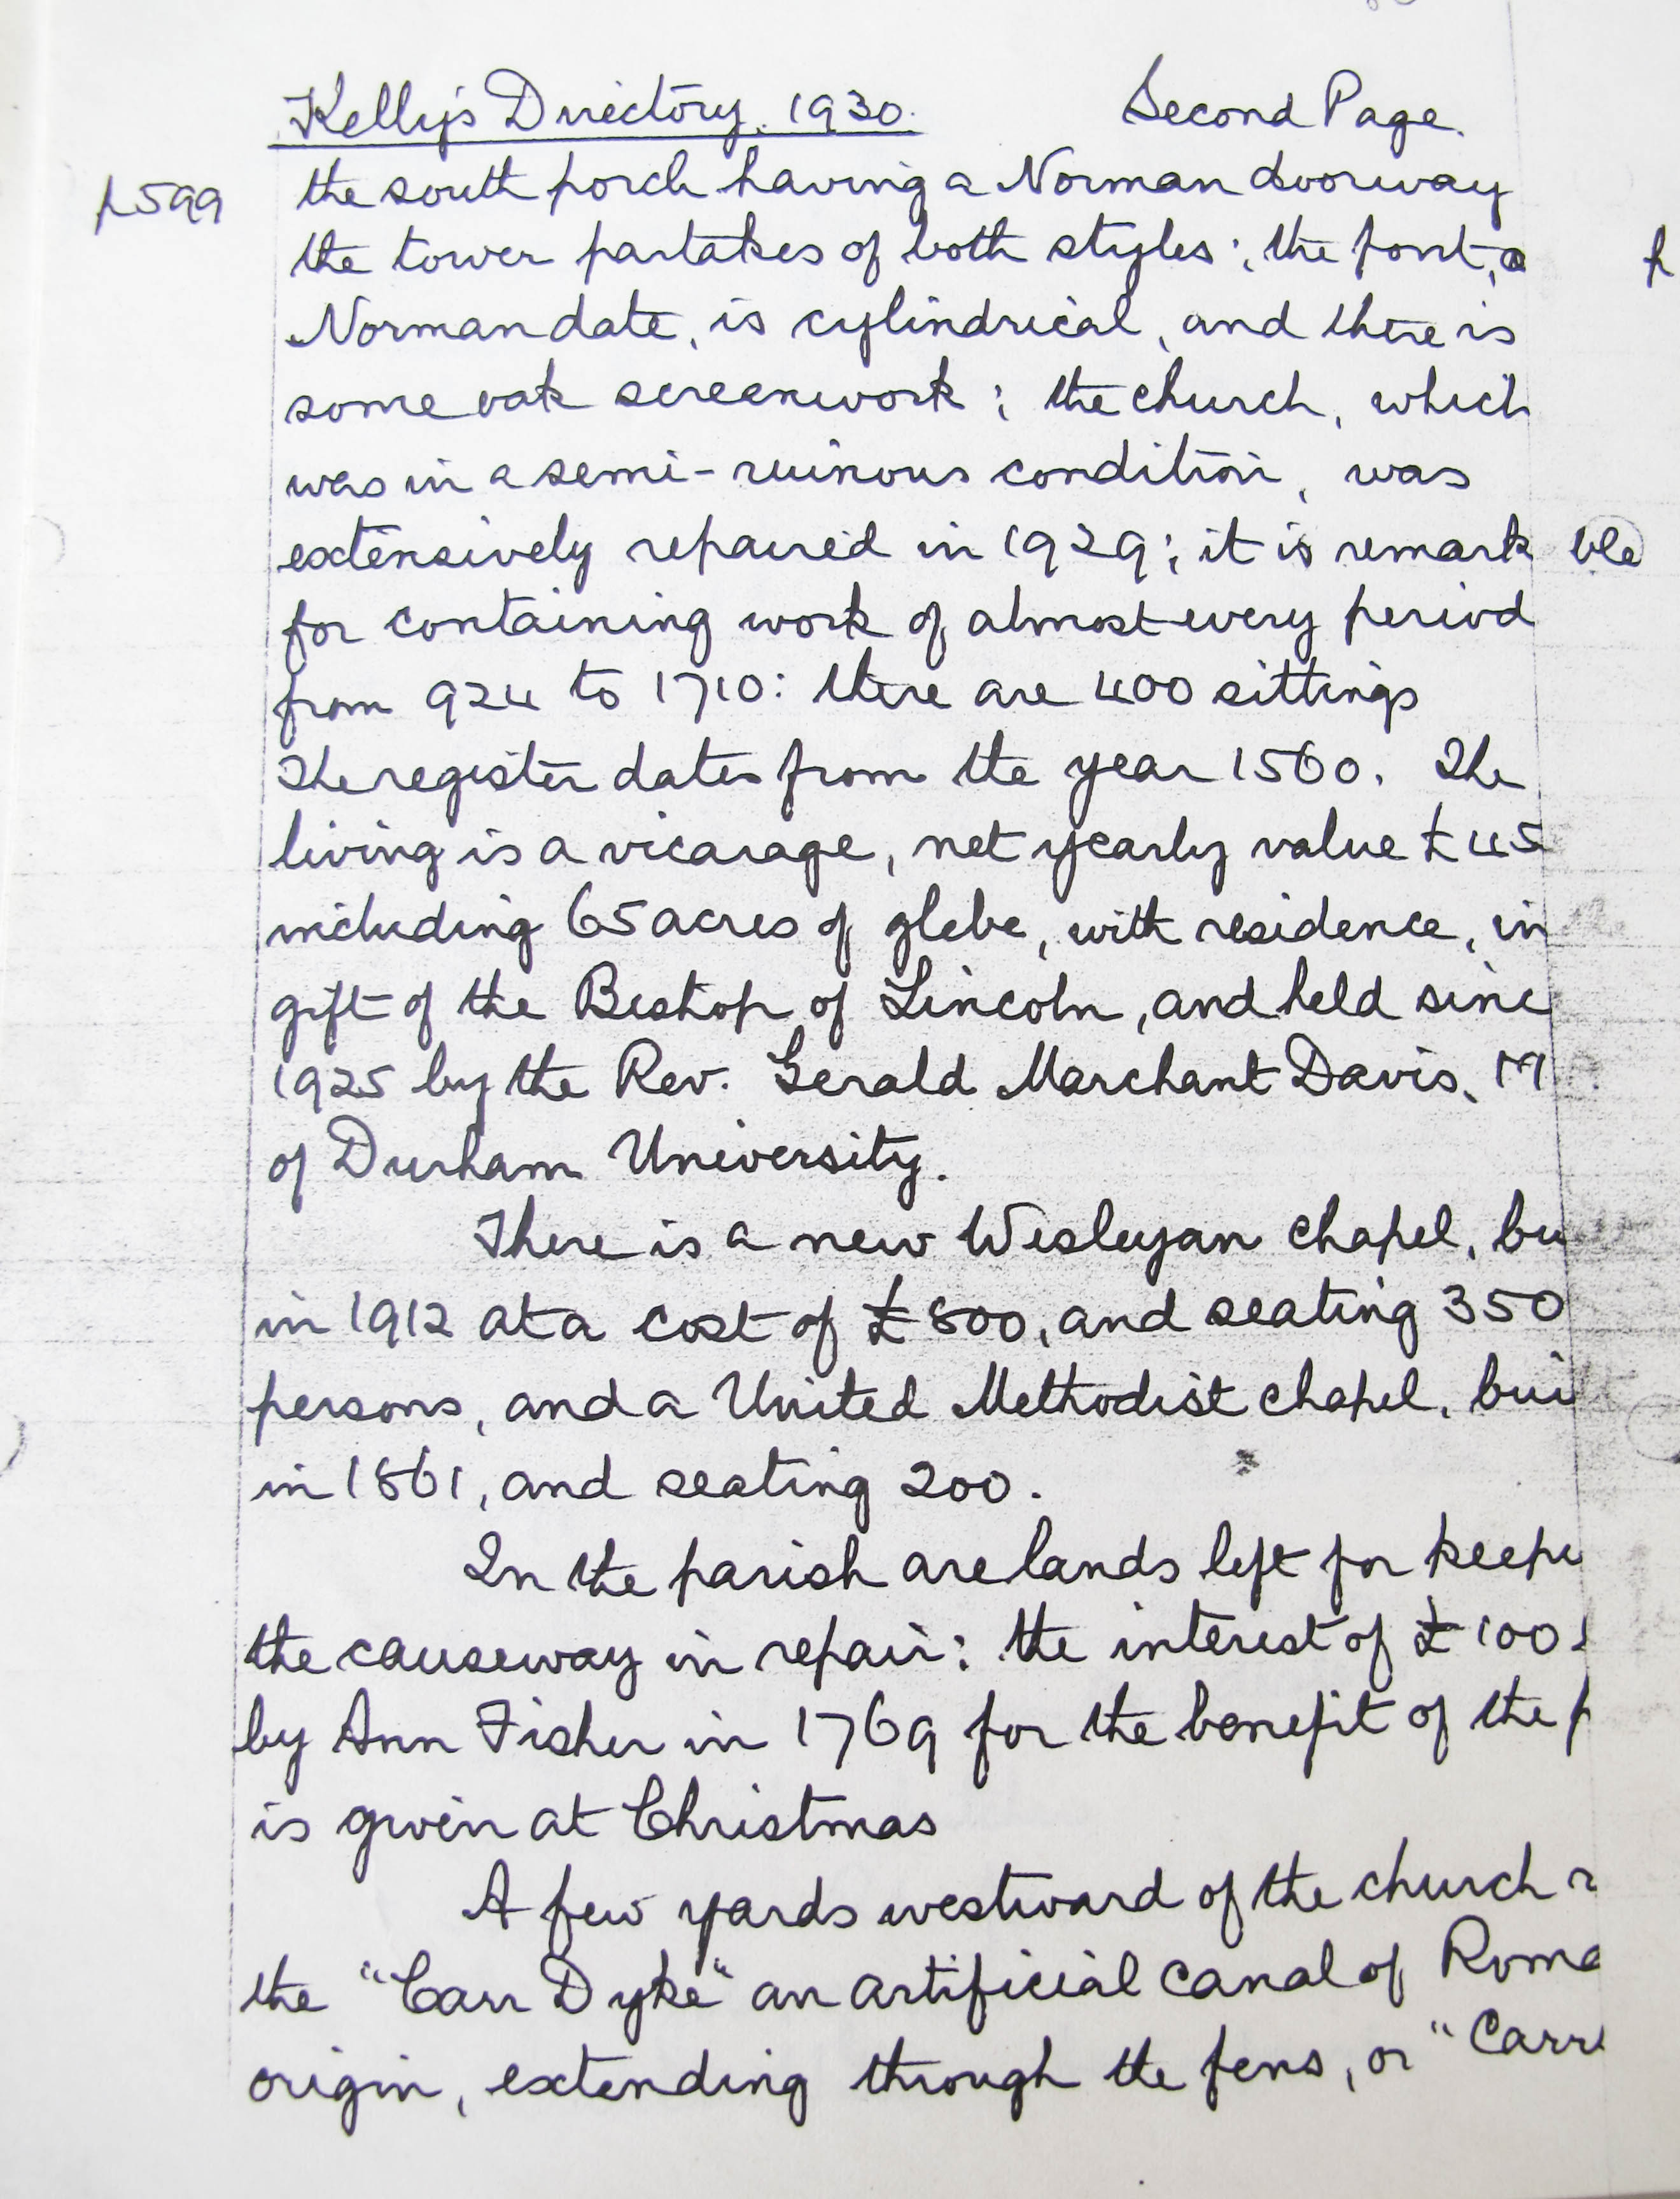 Kelly's Directory. 1930. Second Page.
p599 the south porch having a Norman doorway
the tower partakes of both styles; the font, o
Norman date, is cylindrical, and there is
some oak screenwork; the church, which
was in a semi-ruinous condition, was
extensively repaired in 1929; it is remark ble
for containing work of almost every period
from 924 to 1710: there are 400 sittings
The register dates from the year 1560. The
living is a vicarage, net yearly value £45
including 65 acres of glebe, with residence, in
gift of the Bishop of Lincoln, and held sinc
1925 by the Rev. Gerald Marchant Davis, M
of Durham University.
There is a new Wesleyan chapel, bu
in 1912 at a cost of £800, and seating 350
persons, and a United Methodist chapel, bui
in 1861, and seating 200.
In the parish are lands left for keepi
the causeway in repair: the interest of £100
by Ann Fisher in 1769 for the benefit of the p
is given at Christmas
A few yards westward of the church r
the "Carr Dyke" an artificial canal of Roma
origin, extending through the fens, or "Carr